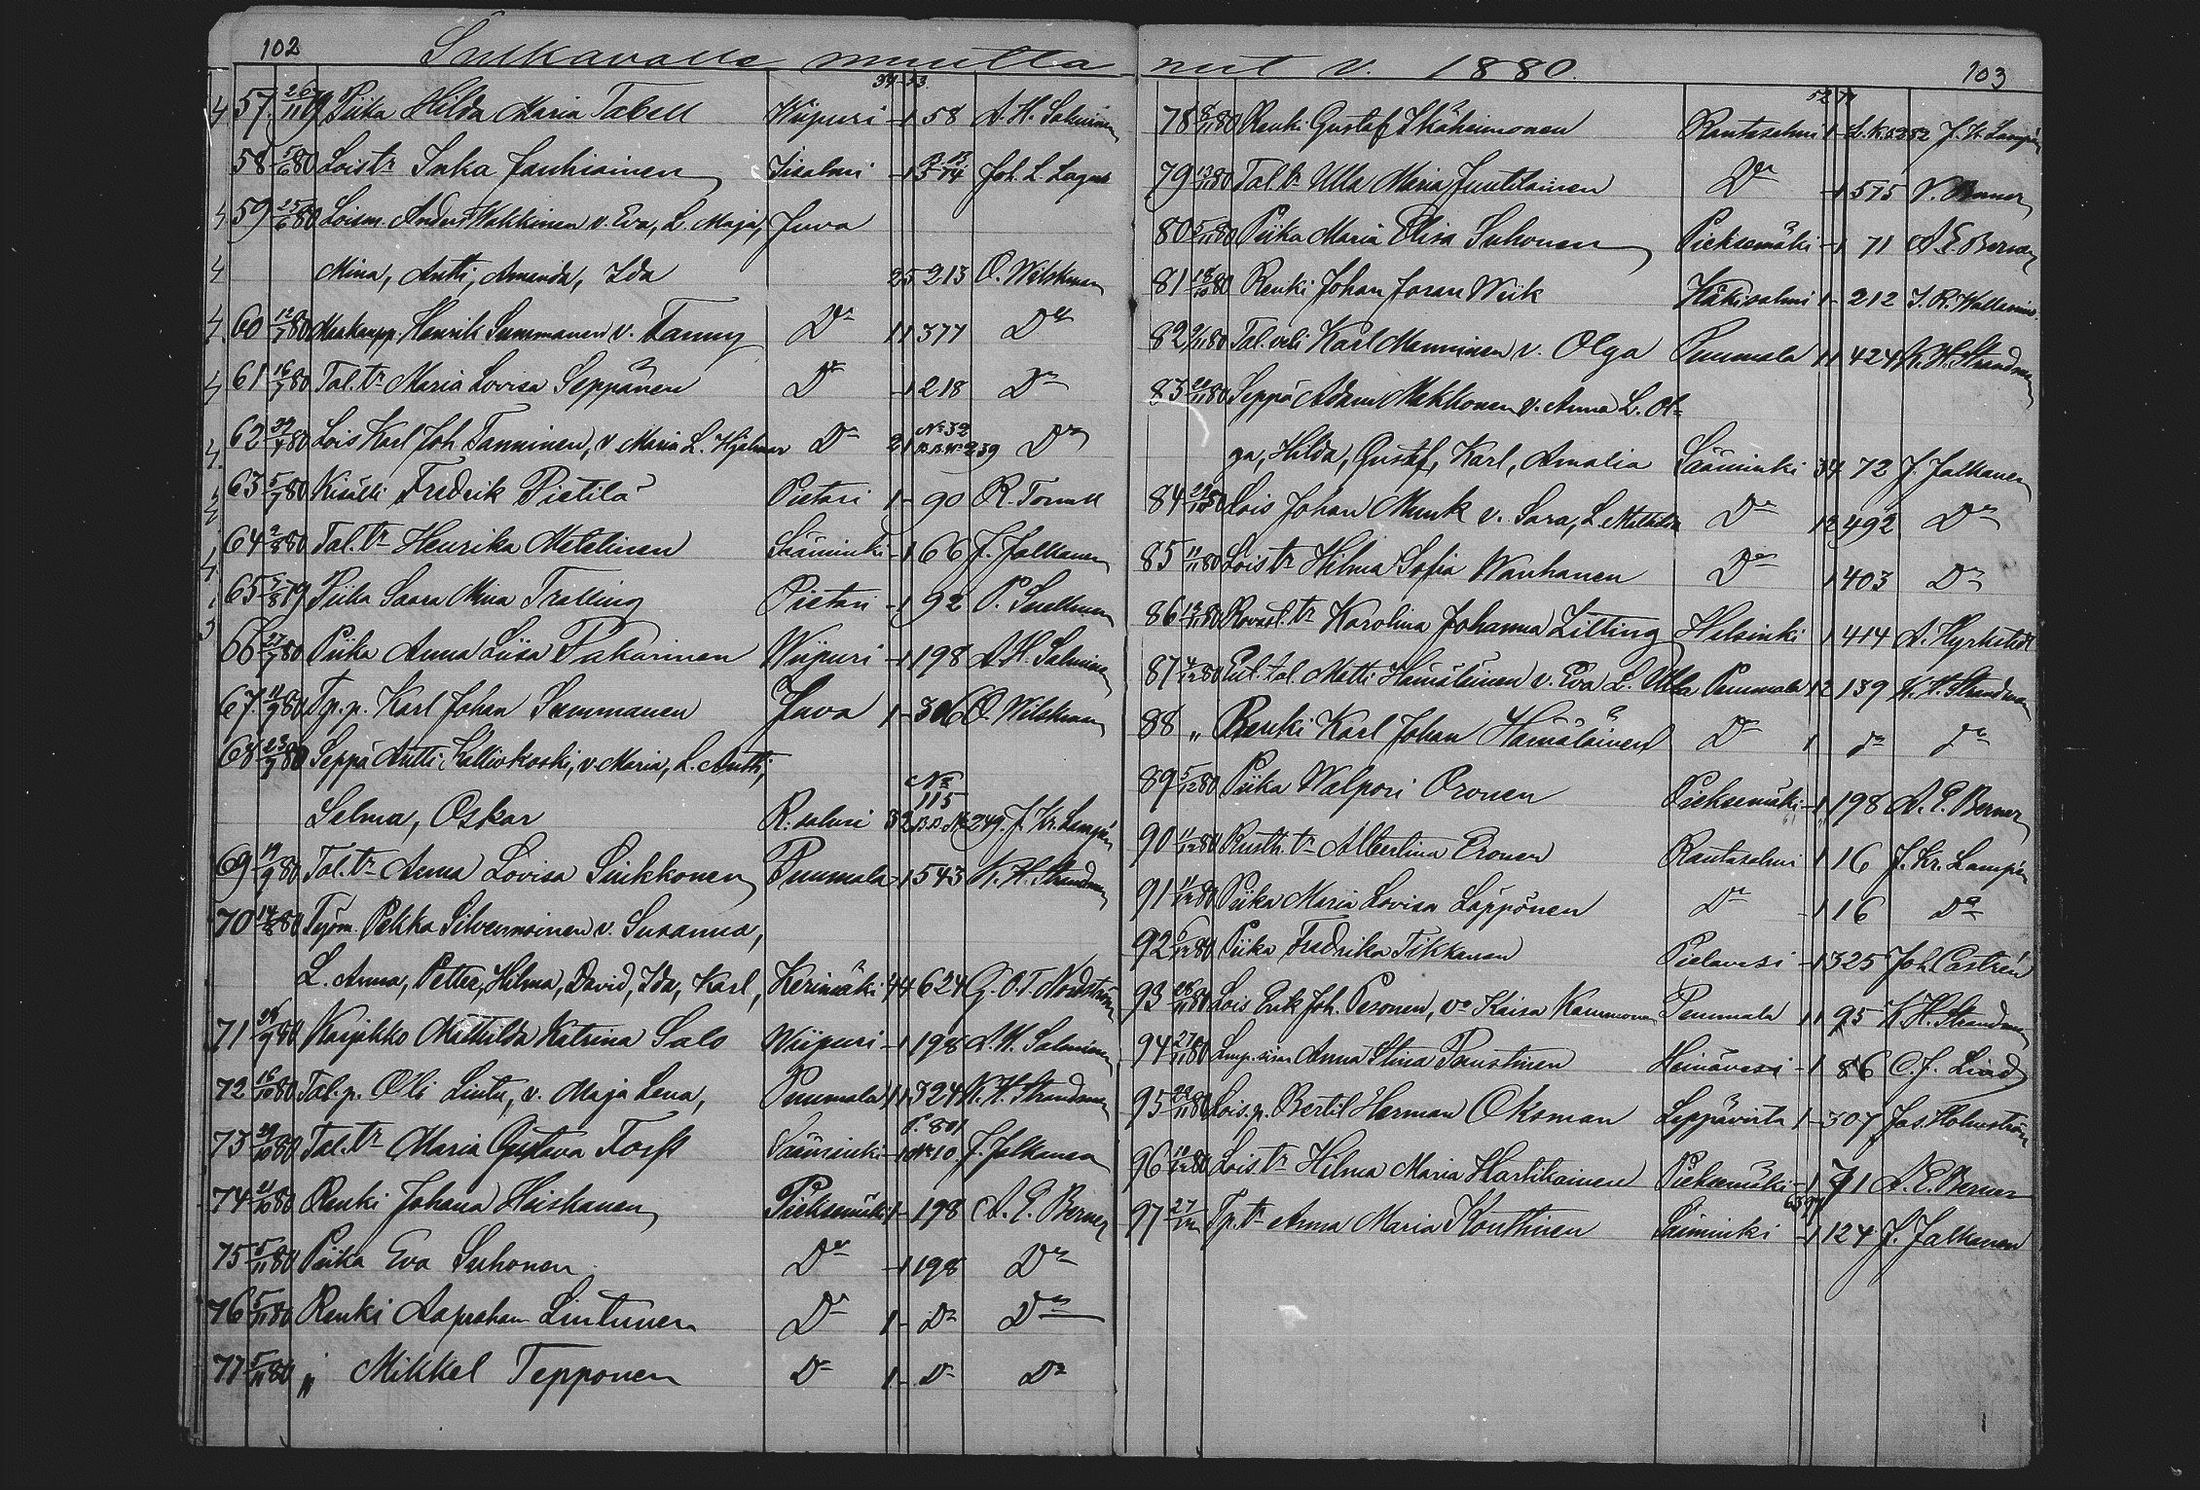 102
Sulkavalle muutta
39 53
57 26/11 79 Piika Hilda Maria Tabell Wiipuri - 1 58 A. H. Salminen
58 5/6 80 Loistr Inka Jauhiainen Iisalmi - 1 Joh. L. Lagus
59 25/6 80 Loism. Anders Wakkinen v. Eva, L. Maja, Juva
Mina, Antti, Amanda, Ida 2 5 213 O. Wilskman
60 12/7 80 Henrik Summanen v. Fanny Do 1 1 377 Do
61 16/7 80 Tal. tr Maria Lovisa Seppänen Do - 1 218 Do
62 80 Lois Karl Joh. Tanninen, v Maria L. Hjalmar Do 2 1 No 32 239 Do
63 5/7 80 Kisälli Fredrik Pietilä Pietari 1 - 90 R.
64 2/8 80 Tal. tr Henrika Metelinen Sääminki - 1 66 J. Jalkanen
65 7/8 79 Piika Saara Mina Tralling Pietari - 1 92 P. Snellman
66 27/7 80 Piika Anna Liisa Pakarinen Wiipuri - 1 198 A. H. Salminen
67 11/9 80 Tp. p. Karl Johan Summanen Juva 1 - 306 O. Wilskman
68 23/9 80 Seppä Antti Kalliokoski, v. Maria, L. Antti,
Selma, Oskar R. salmi 3 2 No 115 249. J. Kr. Lampén
69 19/9 80 Tal. tr Anna Lovisa Sinkkonen Puumala - 1 543 K. H. Strandman
70 14/8 80 Työm. Pekka Silvennoinen v. Susanna,
L. Anna, Petter, Hilma, David, Ida, Karl, Kerimäki 4 4 624 G. O. T. Nordström
71 29/9 80 Karjakko Mathilda Katrina Salo Wiipuri - 1 198 A. H. Salminen
72 16/10 80 Tal. p. Olli Lintu, v. Maja Lena, Puumala 1 1 324 K. H. Strandman
73 29/10 80 Tal. tr Maria Gustava Forss Sääminki - 1 P. 801 No 10 J. Jalkanen
74 21/10 80 Renki Johana Heiskanen Pieksemäki 1 - 198 A. E. Berner
75 5/11 80 Piika Eva Suhonen Do - 1 198 Do
76 5/11 80 Renki Aapraham Lintunen Do 1 - Do Do
77 5/11 80 „ Mikkel Tepponen Do 1 - Do Do
nut v. 1880.
103
52 74
78 80 Renki Gustaf Ikäheimonen Rantasalmi 1 - L.K. 5252 J. Kr. Lampén
79 80 Tal tr Ulla Maria Juutilainen Do - 1 575 Do
80 5/11 80 Piika Maria Elisa Suhonen Pieksemäki - 1 71 A. E. Berner
81 18/10 80 Renki Johan Joran Wiik Käkisalmi 1 - 212
82 80 Tal. veli Karl Manninen v. Olga Puumala 1 1 424 K. H. Strandman
83 80 Seppä Adam Makkonen v. Anna L. Ol-
ga, Hilda, Gustaf, Karl, Amalia Sääminki 3 4 72 J. Jalkanen
84 80 Lois Johan Munk v. Sara, L. Matilda Do 1 2 492 Do
85 11/11 80 Lois tr Hilma Sofia Wanhanen Do 1 403 Do
86 80 Rovast. tr Karolina Johanna Litting Helsinki 1 414 A. Hyrkstedt
87 4/12 80 Ent. tal. Matti Hämäläinen v. Eva L. Ulla Puumala 1 2 139 K. H. Strandman
88 „ Renki Karl Johan Hämäläinen Do 1 do do
89 5/12 80 Piika Walpori Oronen Pieksemäki - 1 198 A. E. Berner
90 11/12 80 Rusth. tr Albertina Eronen Rantasalmi 1 16 J. Kr. Lampén
91 11/12 80 Piika Maria Lovisa Läppönen Do - 1 16 Do
92 6/12 80 Piika Fredrika Tikkanen Pielavesi - 1 325 Joh Castrén
93 80 Lois Erik Joh. Pesonen, vo Kaisa Kammonen Puumala 1 1 95 K. H. Strandman
94 27/11 80 Anna Stina Paustinen Heinävesi - 1 86 C. J. Lind
95 80 Lois. p. Bertil Herman Oksman Leppävirta 1 - 307 Jos. Holmström
96 80 Lois. tr Hilma Maria Hartikainen Pieksemäki - 1 71 A. E. Berner
63 97
97 27/12 Tp. tr Anna Maria Konttinen Sääminki - 1 124 J. Jalkanen